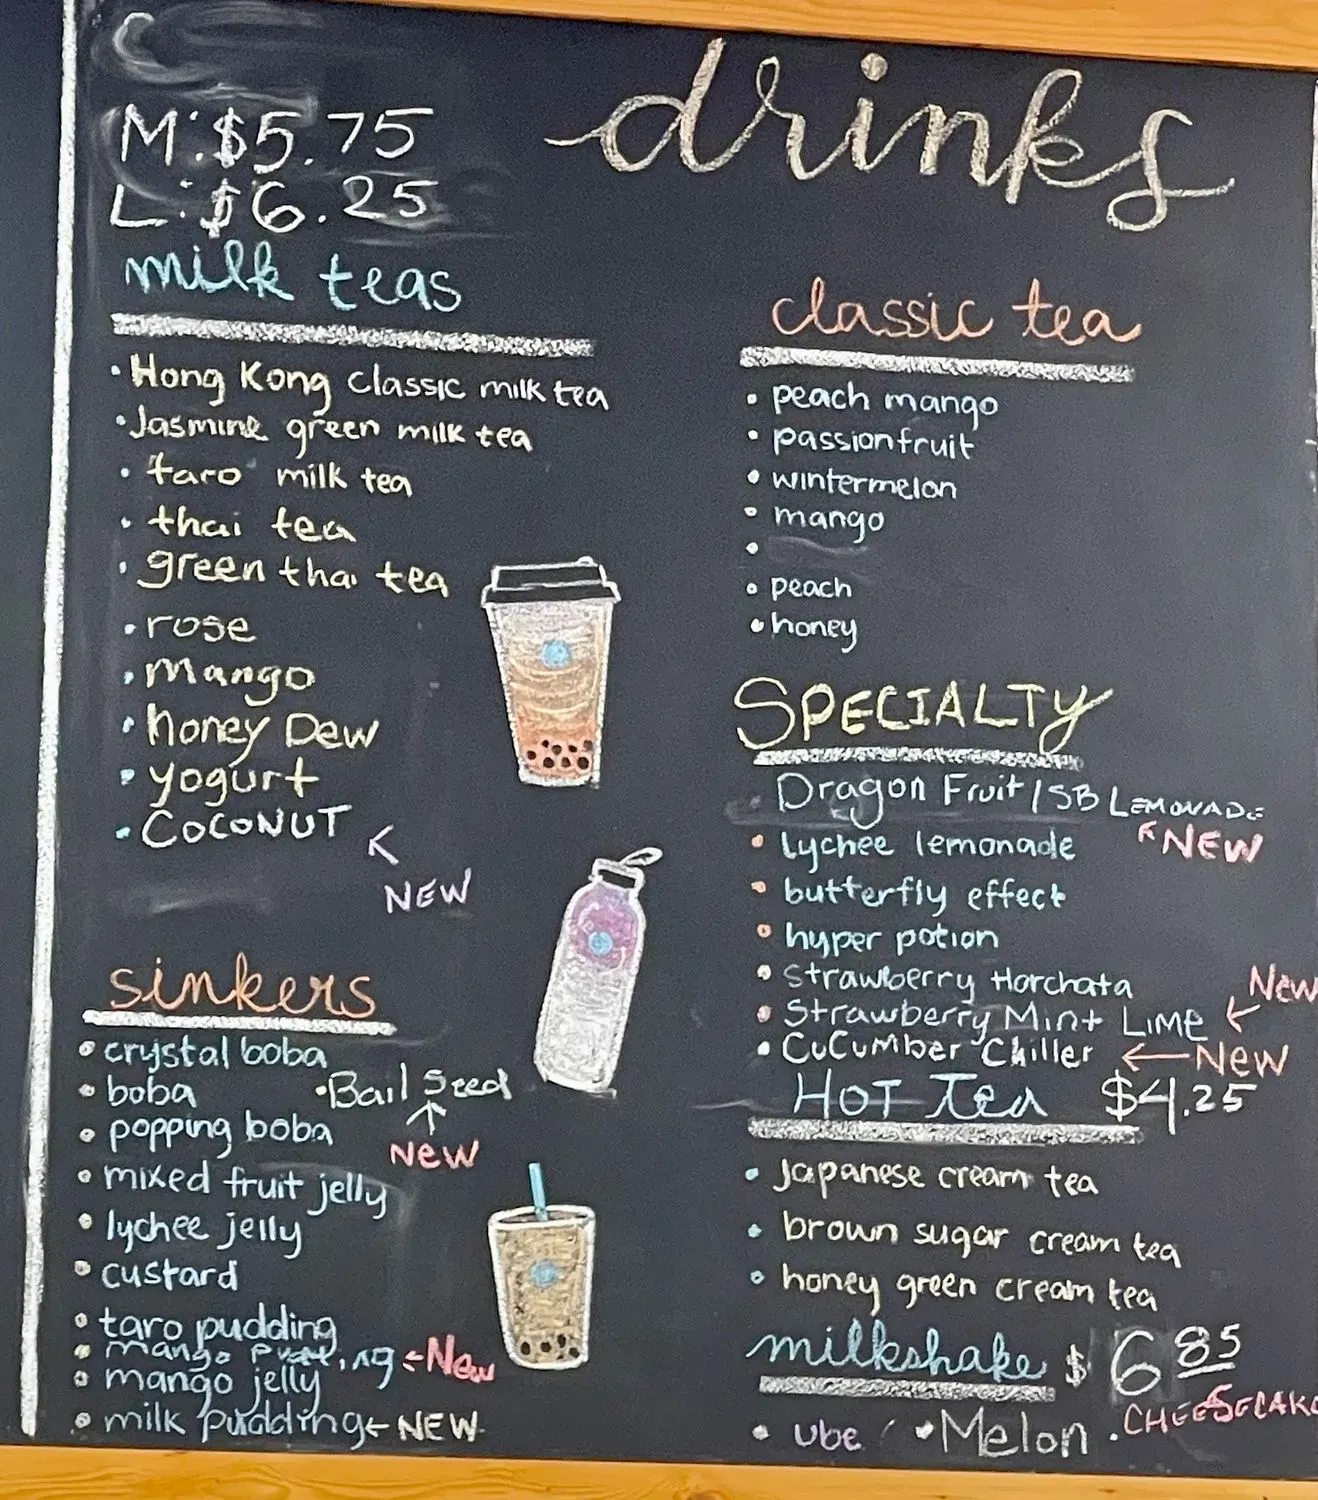 drinks
M: $5.75
L: $6.25
milk teas
• Hong Kong classic milk tea
• Jasmine green milk tea
• taro milk tea
• thai tea
• green thai tea
• rose
• Mango
• honey Dew
• yogurt
• COCONUT
NEW
sinkers
• crystal boba
• boba
• Bail Seed
New
• popping boba
• mixed fruit jelly
• lychee jelly
• custard
• taro pudding
• mango pudding ← New
• mango jelly
• milk pudding ← NEW
classic tea
• peach mango
• passionfruit
• wintermelon
• mango
•
• peach
• honey
SPECIALTY
Dragon Fruit / SB LEMONADE
NEW
• lychee lemonade
• butterfly effect
• hyper potion
• Strawberry Horchata
• Strawberry Mint LIME ← New
• CuCumber Chiller ← New
HOT Tea $4.25
• Japanese cream tea
• brown sugar cream tea
• honey green cream tea
milkshake $6.85
• ube • Melon • CHEESECAKE